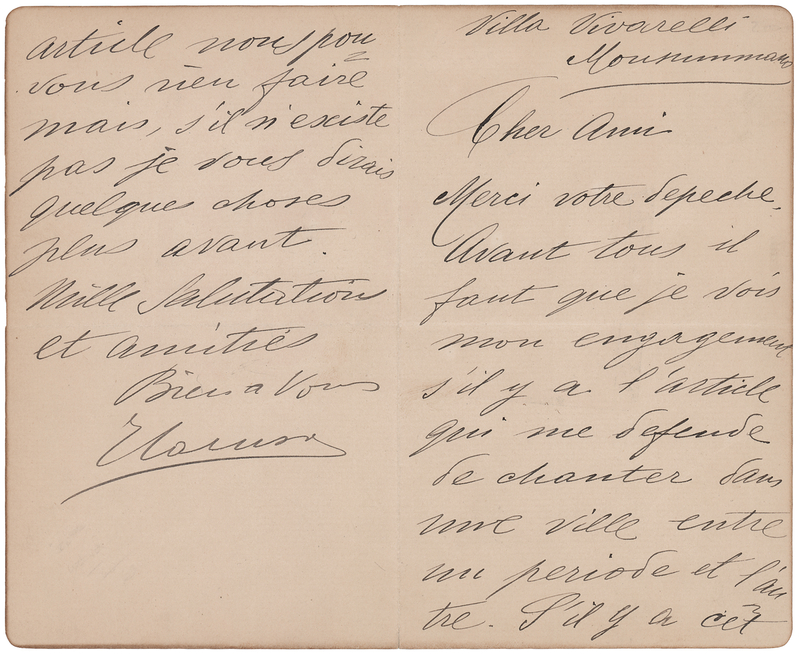 Villa Vivarelli
Monsummano
Cher Ami
Merci votre depeche.
Avant tous il
faut que je vois
mon engagement
s'il y a l'article
qui me defende
de chanter dans
une ville entre
un periode et l'au
tre. S'il y a cèt
article nous pou
vous rien faire
mais, s'il n'existe
pas je vous dirais
quelques choses
plus avant.
Mille Salutations
et amitiés
Bien a Vous
ECaruso